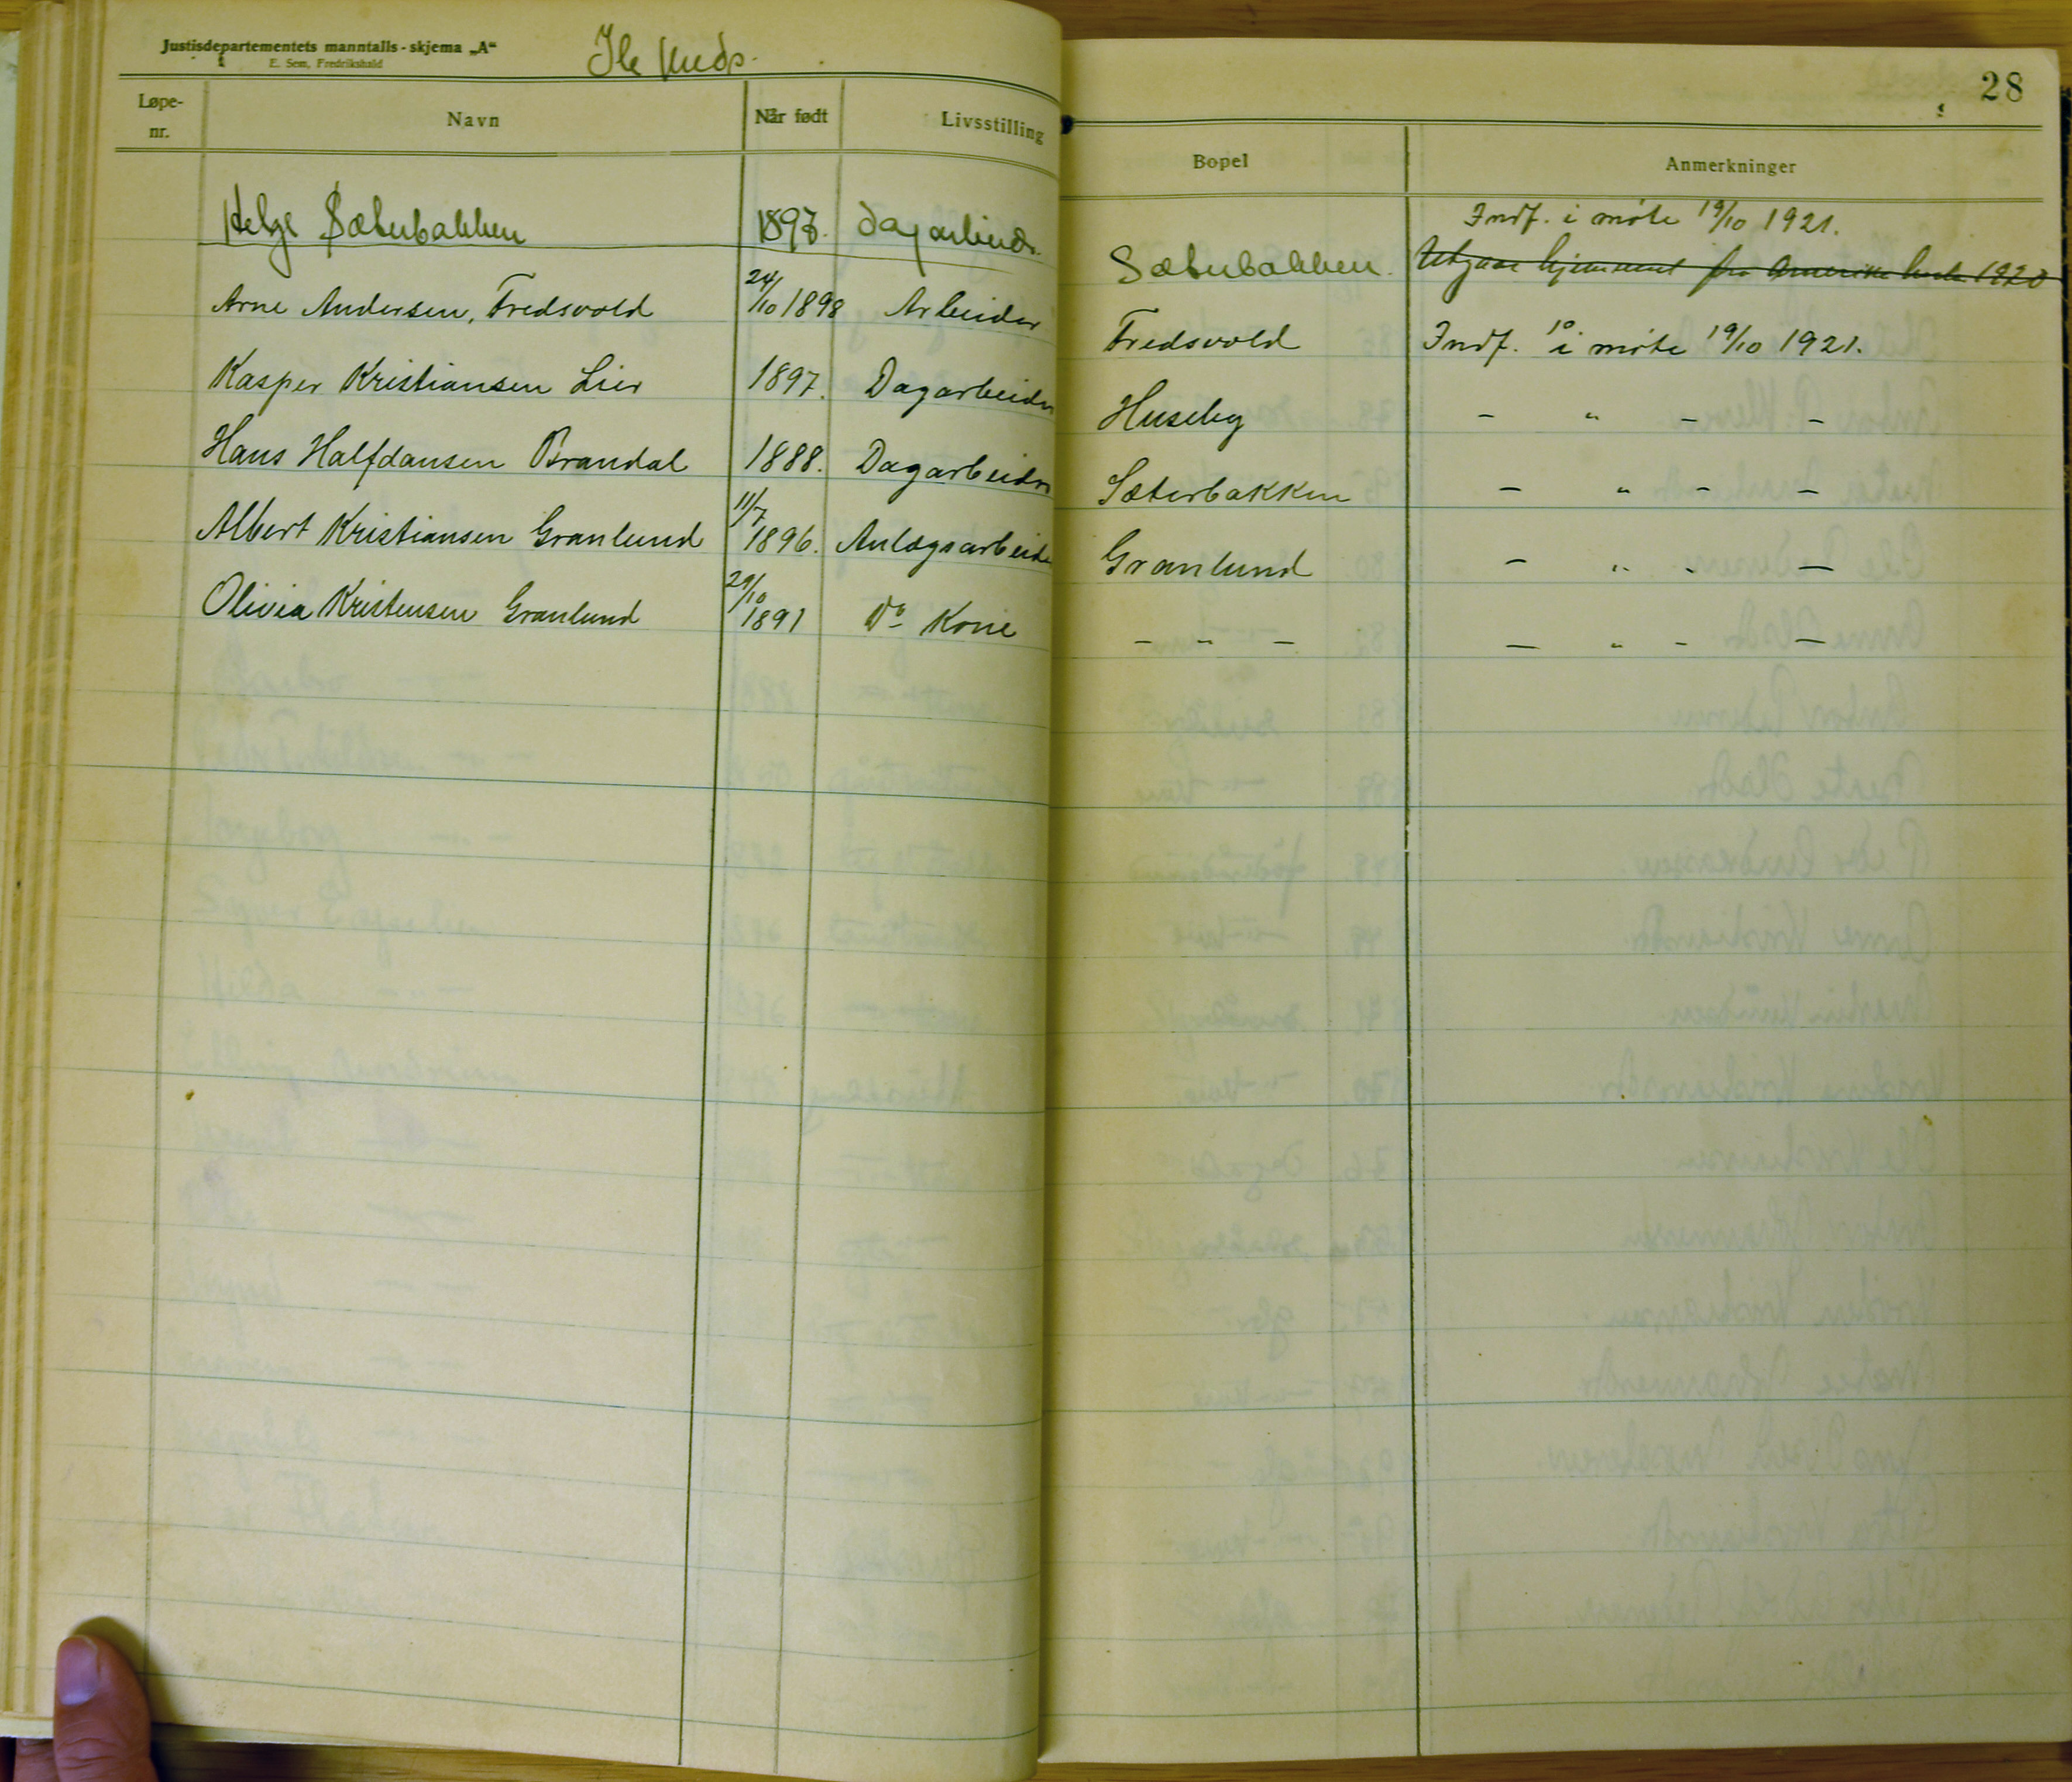 Justisdepartementets manntalls-skjema „A“
E. Sem, Fredrikshald
28
Løpe-nr. Navn Når født Livsstilling Bopel Anmerkninger
Indf. i møte 19/10 1921.
Helge Sæterbakken 1897. Dagarbeider Sæterbakken. Utgaar hjemmemt fra Amerika 1920
Arne Andersen, Fredsvold 24/10 1898 Arbeider Fredsvold Indf. i møte 19/10 1921.
Kasper Kristiansen Lier 1897. Dagarbeider Huseby - " - -
Hans Halfdansen Brandal 1888. Dagarbeider Sæterbakken - " - -
Albert Kristiansen Granlund 11/7 1896. Anlægsarbeide Granlund - " - -
Olivia Kristensen Granlund 29/10 1891 Do Kone - " - - " - -